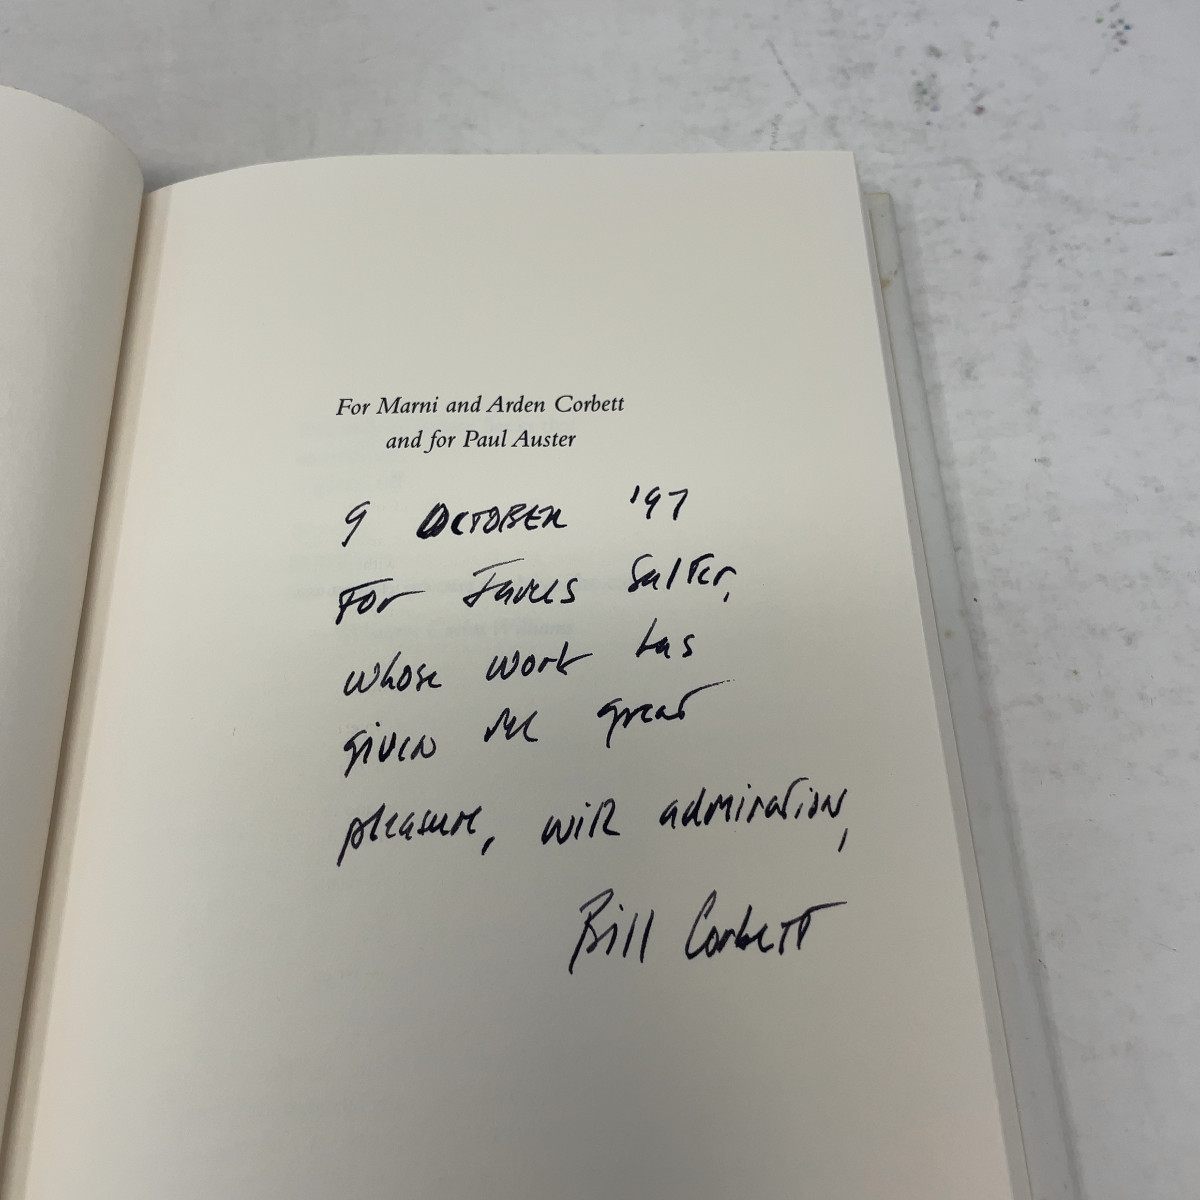 For Marni and Arden Corbett
and for Paul Auster
9 OCTOBER '97
For James Salter,
whose work has
given me great
pleasure, with admiration,
Bill Corbett